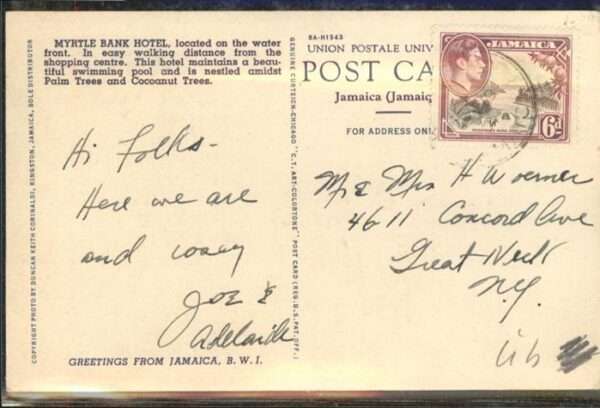 MYRTLE BANK HOTEL, located on the water
front. In easy walking distance from the
shopping centre. This hotel maintains a beau-
tiful swimming pool and is nestled amidst
Palm Trees and Cocoanut Trees.
Hi Folks-
Here we are
and
Joe &
Adelaide
GREETINGS FROM JAMAICA, B. W. I.
COPYRIGHT PHOTO BY DUNCAN KEITH CORINALDI, KINGSTON, JAMAICA, SOLE DISTRIBUTOR
GENUINE CURTEICH-CHICAGO "C.T. ART-COLORTONE" POST CARD (REG. U.S. PAT. OFF.)
8A-H1543
UNION POSTALE UNIV
POST CA
Jamaica (Jamaiq
FOR ADDRESS ONL
JAMAICA
6d
Mr & Mrs H Woerner
4611 Concord Ave
Great Neck
N.Y.